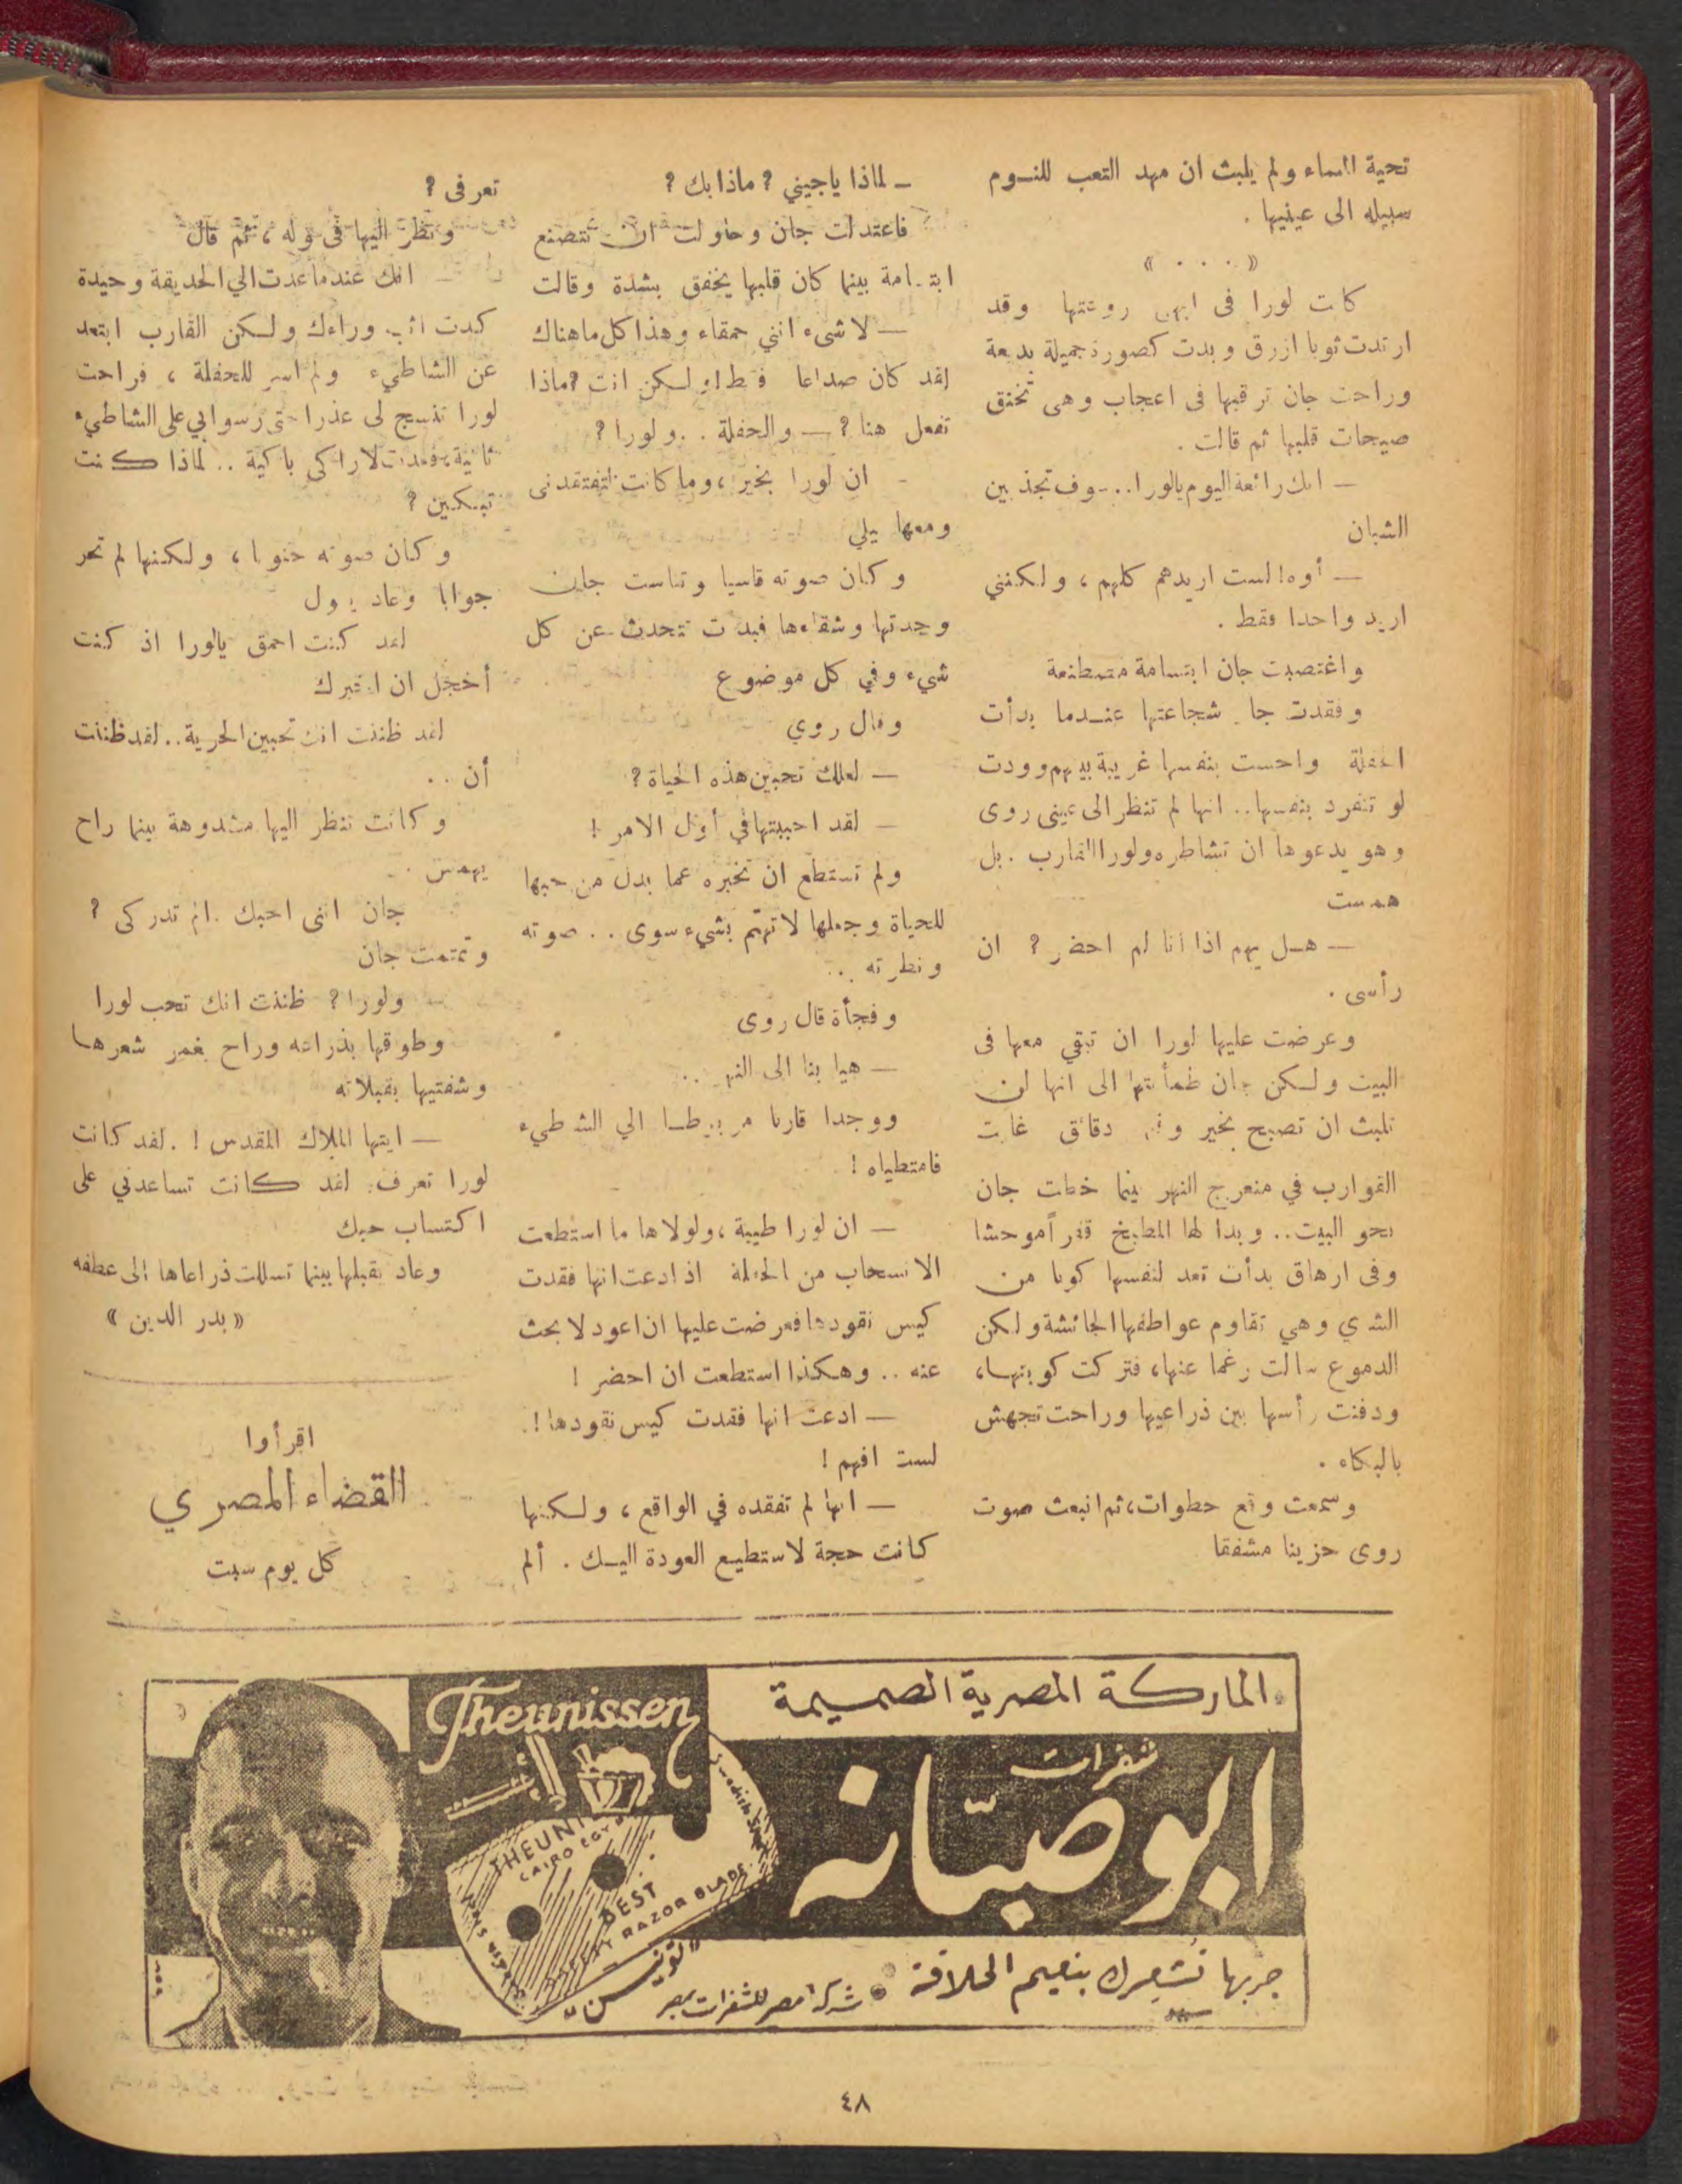 تحية المساء ولم يلبث ان مهد التعب للنوم
سبيله الى عينيها .
« . . . »
كانت لورا فى ابهى روعتها وقد
ارتدت ثوبا ازرق وبدت كصورة جميلة بديعة
وراحت جان ترقبها فى اعجاب وهى تخنق
صيحات قلبها ثم قالت .
— انك رائعة اليوم يالورا.. سوف تجذبين
الشبان
— أوه! لست اريدهم كلهم ، ولكننى
اريد واحدا فقط .
واغتصبت جان ابتسامة مصطنعة
وفقدت جان شجاعتها عندما بدأت
الحفلة واحست بنفسها غريبة بينهم وودت
لو تنفرد بنفسها.. انها لم تنظر الى عينى روى
وهو يدعوها ان تشاطره ولورا القارب . بل
همست
— هل يهم اذا أنا لم احضر ? ان
رأسى .
وعرضت عليها لورا ان تبقي معها فى
البيت ولكن جان طمأنتها الى انها لن
تلبث ان تصبح بخير وفى دقائق غابت
القوارب في منعرج النهر بينما خطت جان
نحو البيت.. وبدا لها المطبخ قفراً موحشا
وفى ارهاق بدأت تعد لنفسها كوبا من
الشاي وهي تقاوم عواطفها الجائشة ولكن
الدموع سالت رغما عنها، فتركت كوبتها،
ودفنت رأسها بين ذراعيها وراحت تجهش
بالبكاء .
وسمعت وقع خطوات، ثم انبعث صوت
روى حزينا مشفقا
— لماذا ياجيني ? ماذا بك ?
فاعتدلت جان وحاولت ان تتصنع
ابتسامة بينما كان قلبها يخفق بشدة وقالت
— لا شىء انني حمقاء وهذا كل ما هناك
لقد كان صداعا فقط او لكن انت ? ماذا
تفعل هنا ? — والحفلة . . ولورا ?
- ان لورا بخير ، وما كانت لتفتقدنى
ومعها بيلي
وكان صوته قاسيا وتناست جان
وحدتها وشقاءها فبدت تتحدث عن كل
شيء وفي كل موضوع
وقال روي
— لعلك تحبين هذه الحياة ?
— لقد احببتها في أول الامر !
ولم تستطع ان تخبره عما بدل من حبها
للحياة وجعلها لا تهتم بشيء سوى . . صوته
ونظرته . .
وفجأة قال روى
— هيا بنا الى النهر . .
ووجدا قاربا مربوطا الي الشاطيء
فامتطياه !
— ان لورا طيبة ، ولولاها ما استطعت
الانسحاب من الحفلة اذ ادعت انها فقدت
كيس نقودها فعرضت عليها ان اعود لابحث
عنه . . وهكذا استطعت ان احضر !
— ادعت انها فقدت كيس نقودها !
لست افهم !
— انها لم تفقده في الواقع ، ولكنها
كانت حجة لاستطيع العودة اليك . ألم
تعرفى ?
ونظر اليها فى وله ، ثم قال
— انك عندما عدت الي الحديقة وحيدة
كدت اثب وراءك ولكن القارب ابتعد
عن الشاطيء ولم اسر للحفلة ، فراحت
لورا تنسج لى عذرا حتى رسوا بي على الشاطيء
ثانية، فعدت لاراكى باكية .. لماذا كنت
تبكين ?
وكان صوته حنونا ، ولكنها لم تحر
جوابا وعاد يقول
لقد كنت احمق يالورا اذ كنت
أخجل ان اخبرك
لقد ظننت انك تحبين الحرية .. لقد ظننت
أن . .
وكانت تنظر اليها مشدوهة بينما راح
يهمس .
جان اننى احبك . الم تدركى ?
وتمتمت جان
— ولورا ? ظننت انك تحب لورا
وطوقها بذراعه وراح يغمر شعرها
وشفتيها بقبلاته
— ايتها الملاك المقدس ! . لقد كانت
لورا تعرف . لقد كانت تساعدني على
اكتساب حبك
وعاد يقبلها بينما تسللت ذراعاها الى عطفه
« بدر الدين »
اقرأوا
القضاء المصري
كل يوم سبت
الماركة المصرية الصميمة
شفرات
ابو صبّانه
جربها تشعرك بنعيم الحلاقة
شركة مصر للشفرات بمصر
"تونيسن"
Theunissen
CAIRO EGY
BEST
RAZOR BLADE
Swedish
٤٨